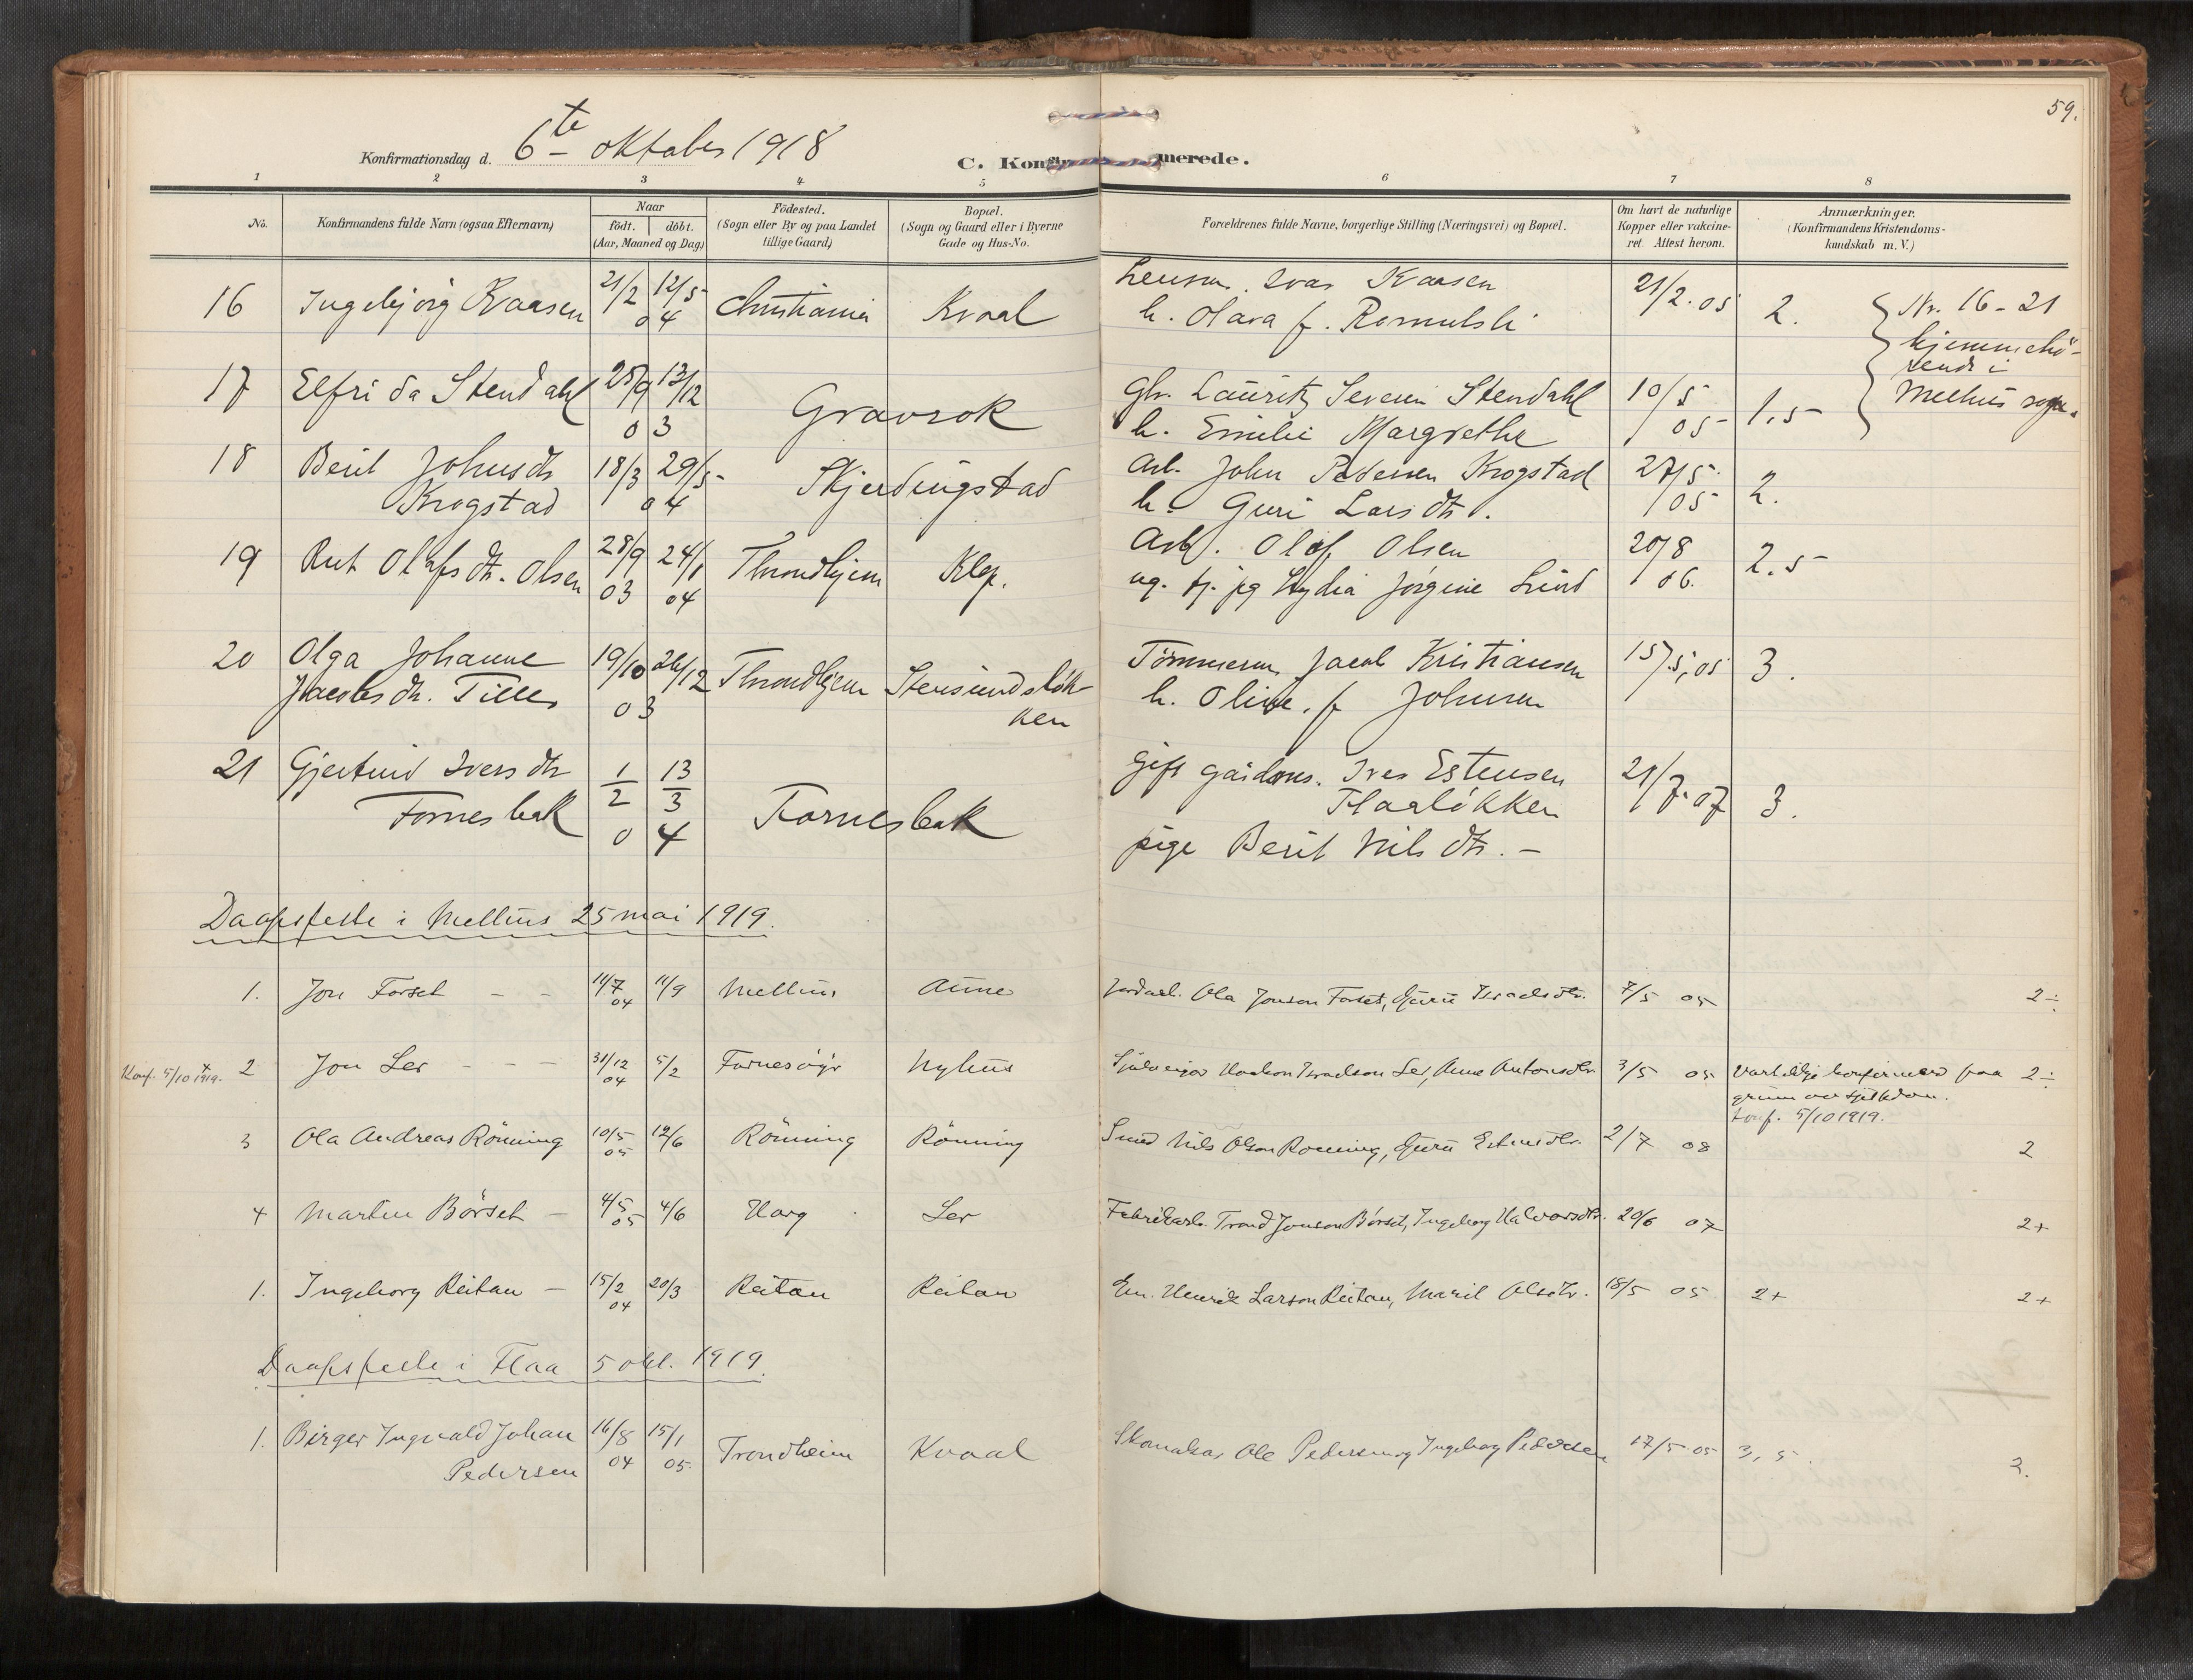 59.
Konfirmationsdag d. 6te oktober 1918
C. Konfir merede.
1 2 3 4 5 6 7 8
No. Konfirmandens fulde Navn (ogsaa Efternavn) Naar født. døbt. (Aar, Maaned og Dag)
Fødested. (Sogn eller By og paa Landet tillige Gaard)
Bopæl. (Sogn og Gaard eller i Byerne Gade og Hus-No.
Forældrenes fulde Navne, borgerlige Stilling (Næringsvei) og Bopæl.
Om havt de naturlige Kopper eller vakcineret. Attest herom.
Anmærkninger. (Konfirmandens Kristendomskundskab m. V.)
16 Ingebjörg Kvaasen 21/2 12/5 04 Christiania Kvaal
Ivar Kvaasen
h. Olava f. 21/2. 05 2.
Nr. 16 - 21
hjemmehö-
rende i
Melhus sogn.
17 Elfrida Stendahl 25/9 13/12 03 Gravrok
Gbr. Lauritz Severin Stendahl
h. Emilie Margrethe 10/5 05 1.5
18 Berit Johnsdtr
Krogstad 18/3 29/5 04 Skjerdingstad
Arb. John Pedersen Krogstad
h. Guri Larsdtr. 27/5 05 2.
19 Rut Olafsdtr. Olsen 28/9 24/1 03 04 Throndhjem Klep.
Arb. Olaf Olsen
ug. tj. pg Lydia Jörgine Lund 20/8 06. 2.5
20 Olga Johanne
Jacobsdtr. Tiller 19/10 26/12 03 Throndhjem Stensundsløk-
ken
Tömmerm. Jacob Kristiansen
h. Oline. f Johnsen 15/5, 05 3.
21 Gjertrud Iversdtr
Fornesbak 1/2 13/3 04 Fornesbak
Gift gårdmd. Iver Estensen
Flaalökken
pige Berit Nilsdtr. - 21/7. 07 3.
Daapsfeste i Melhus 25 mai 1919.
1. Jon Forset - - 11/7 04 11/9 Melhus Aune
Jordarb. Ola Jonson Forset, Guru Israelsdtr. 7/5 05 2÷
Konf. 5/10 1919. 2 Jon Ler - - - 31/12 04 5/2 Fornesöyr Nyhus
Sjølveigar Haakon Israelson Ler, Anne Antonsdtr. 3/5 05 vart ikkje konfirmerd paa 2÷
grunn av sjukdom.
konf. 5/10 1919.
3 Ola Andreas Rönning 10/5 05 12/6 Rönning Rönning
Smed Nils Olson Rönning, Guru Estensdtr. 2/7 08 2
4 Martin Börset - 4/5 05 4/6 Horg Ler
Fabrikarb. Trond Jonson Börset, Ingeborg Halvorsdtr. 20/6 07 2+
1. Ingeborg Reitan - 15/2 04 20/3 Reitan Reitan
Em. Henrik Larson Reitan, Marit Olsdtr. 18/5 05 2+ 2+
Daapsfeste i Flaa 5 okt. 1919.
1. Birger Ingvald Johan
Pedersen 16/8 04 15/1 05. Trondheim Kvaal
Skomakar Ole Pedersen og Ingeborg Pedersen 17/5 05 3,5. 2.